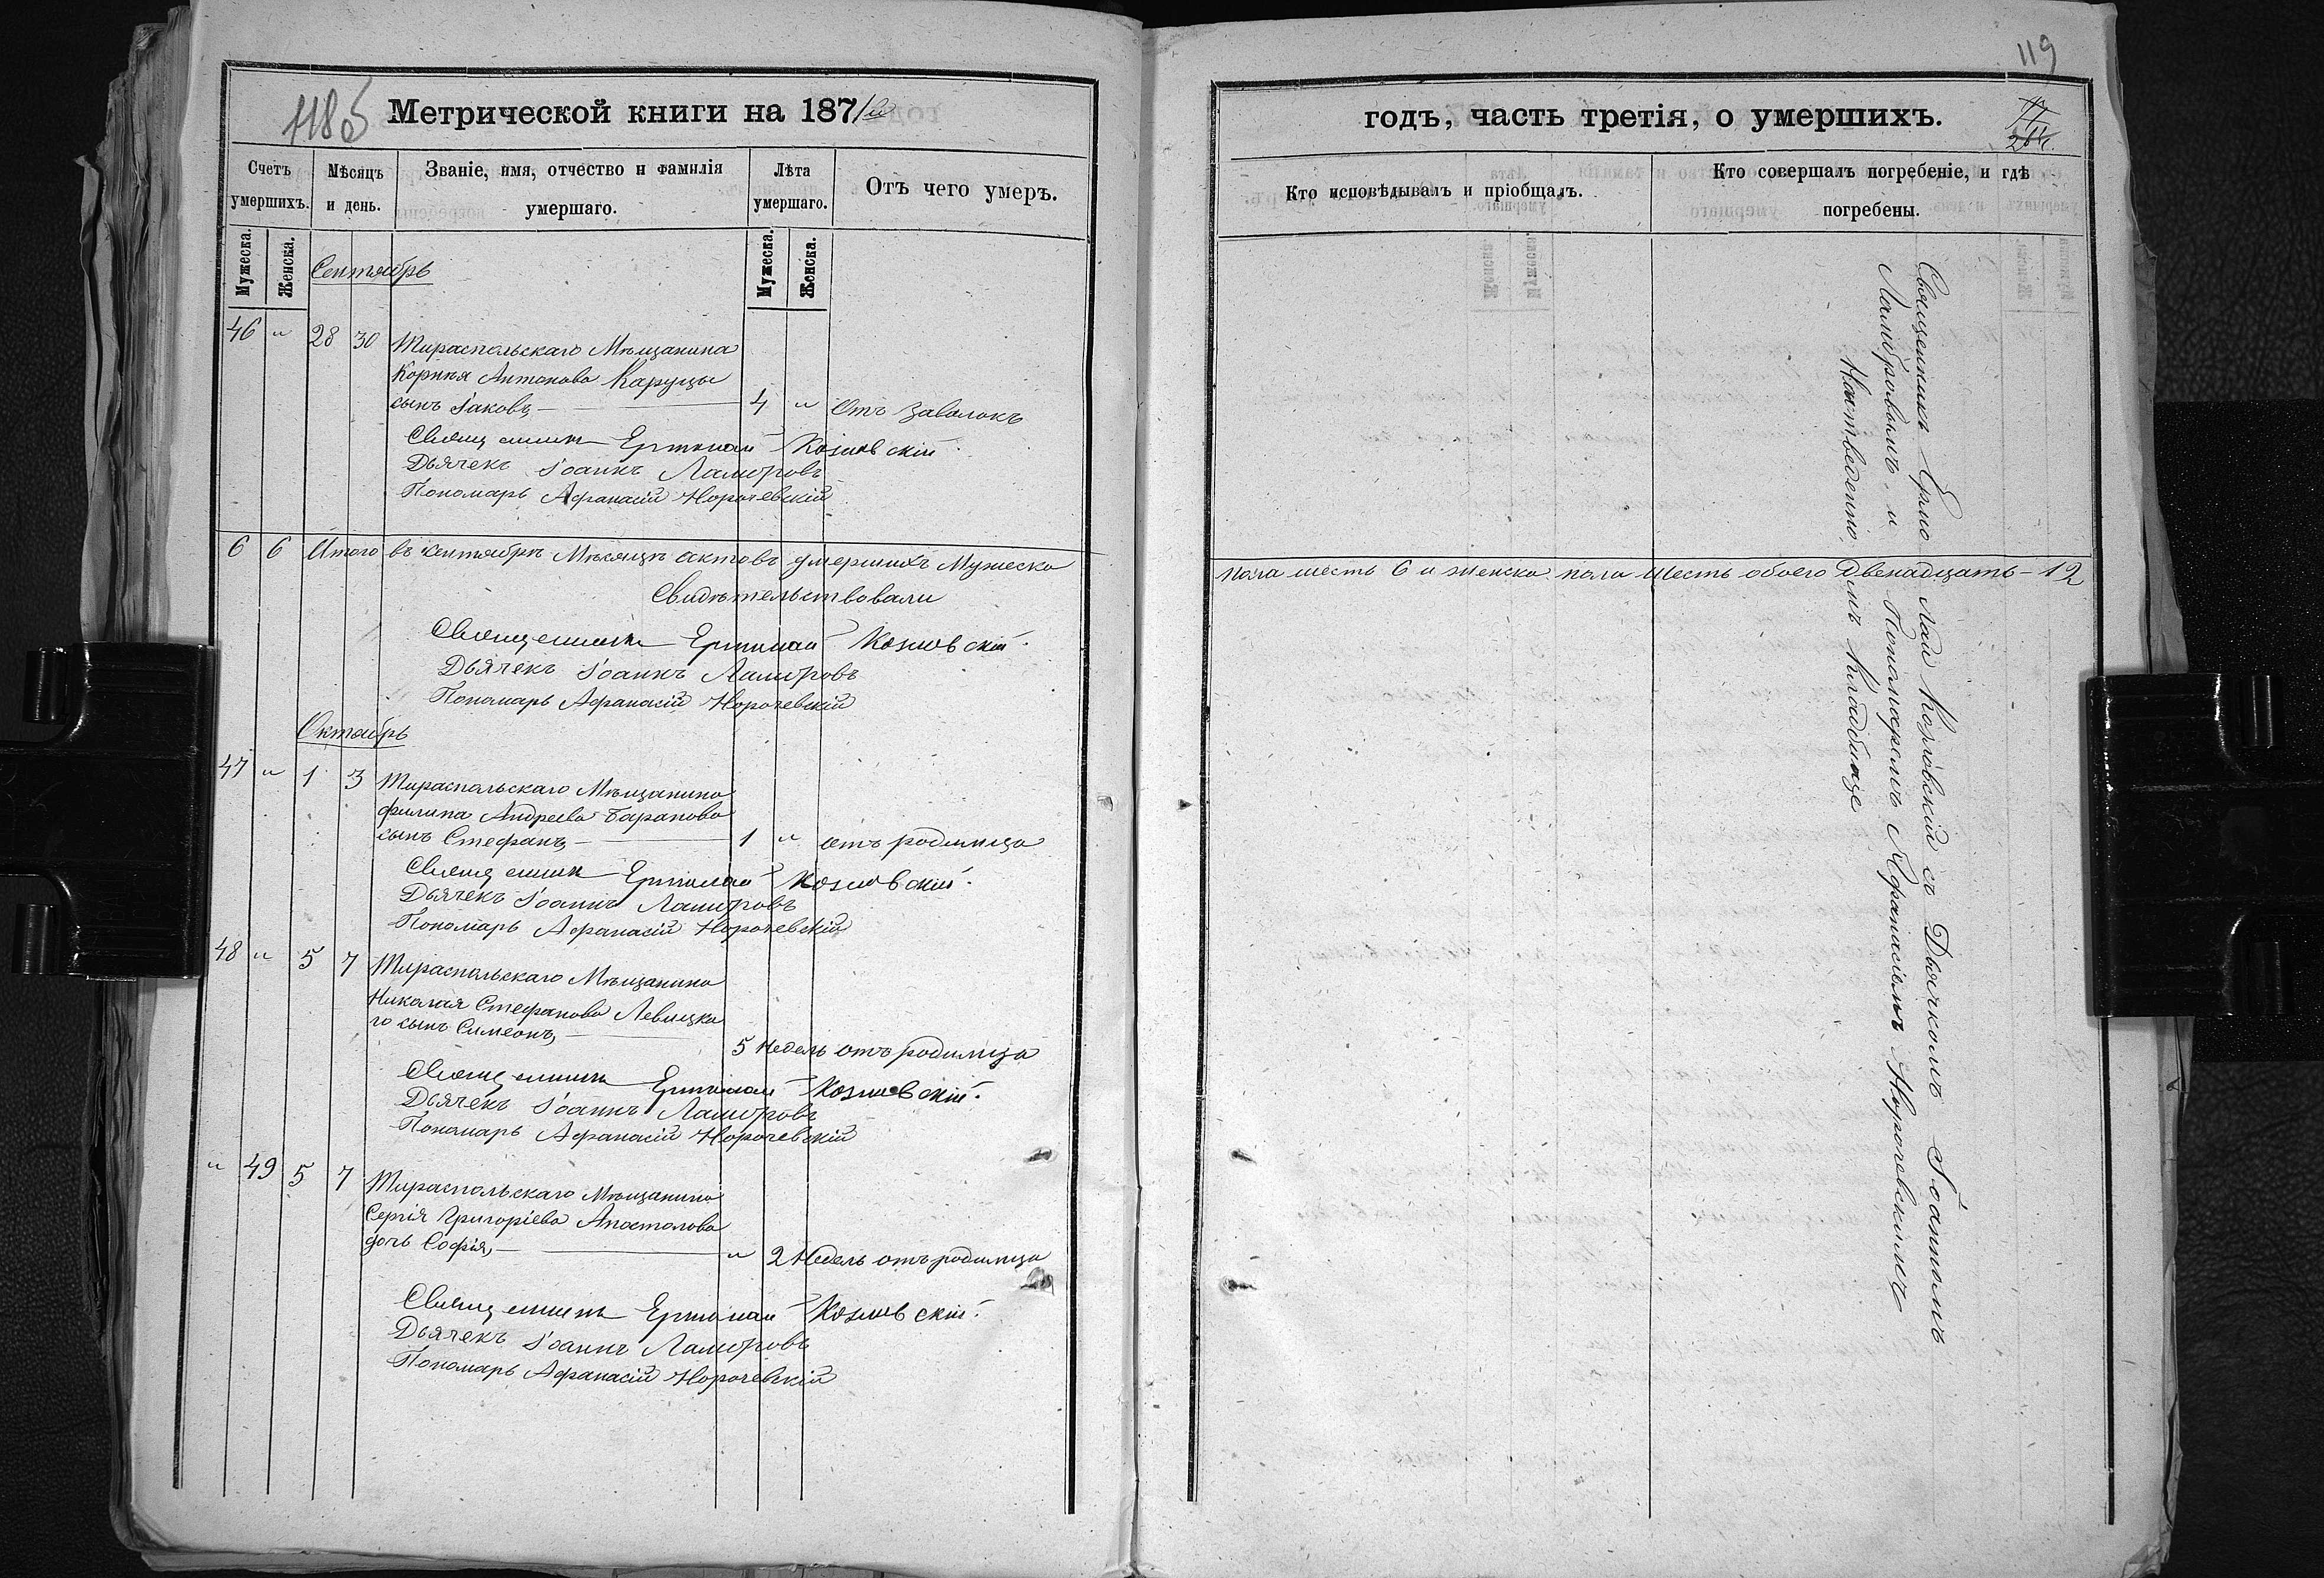 118 об
Метрической книги на 1871й
Счетъ умершихъ.
Мѣсяцъ и день.
Званіе, имя, отчество и фамилія умершаго.
Лѣта умершаго.
Отъ чего умеръ.
Мужеска.
Женска.
Мужеска.
Женска.
Сентябрь
46 " 28 30 Тираспольскаго Мѣщанина
Корнія Антонова Каруцы
сынъ Іаковъ, — 4 " Отъ заволокъ
Священникъ Ермолай Козловскій.
Дьячекъ Іоаннъ Ламбровъ
Пономарь Афанасій Норочевскій
6 6 Итого въ сентябрѣ Мѣсяцѣ актовъ умершихъ Мужеска
Свидѣтельствовали
Священникъ Ермолай Козловскій.
Дьячекъ Іоаннъ Ламбровъ
Пономарь Афанасій Норочевскій
Октябрь
47 " 1 3 Тираспольскаго Мѣщанина
Филипа Андреева Баранова
сынъ Стефанъ, — 1 " отъ родимца
Священникъ Ермолай Козловскій.
Дьячекъ Іоаннъ Ламбровъ
Пономарь Афанасій Норочевскій
48 " 5 7 Тираспольскаго Мѣщанина
Николая Стефанова Левицка
го сынъ Симеонъ, —
5 Недель отъ родимца
Священникъ Ермолай Козловскій.
Дьячекъ Іоаннъ Ламбровъ
Пономарь Афанасій Норочевскій
" 49 5 7 Тираспольскаго Мѣщанина
Сергія Григоріева Апостолова
дочь Софія, — " 2 Недель отъ родимца
Священникъ Ермолай Козловскій.
Дьячекъ Іоаннъ Ламбровъ
Пономарь Афанасій Норочевскій
119
годъ, часть третія, о умершихъ.
Кто исповѣдывалъ и пріобщалъ.
Кто совершалъ погребеніе, и гдѣ погребены.
пола шесть 6 и женска пола шесть обоего Двенадцать — 12
Священникъ Ермолай Козловскій съ Дьячкомъ Іоанномъ
Ламбровымъ, и Пономаремъ Афанасіемъ Норочевскимъ
кладбище